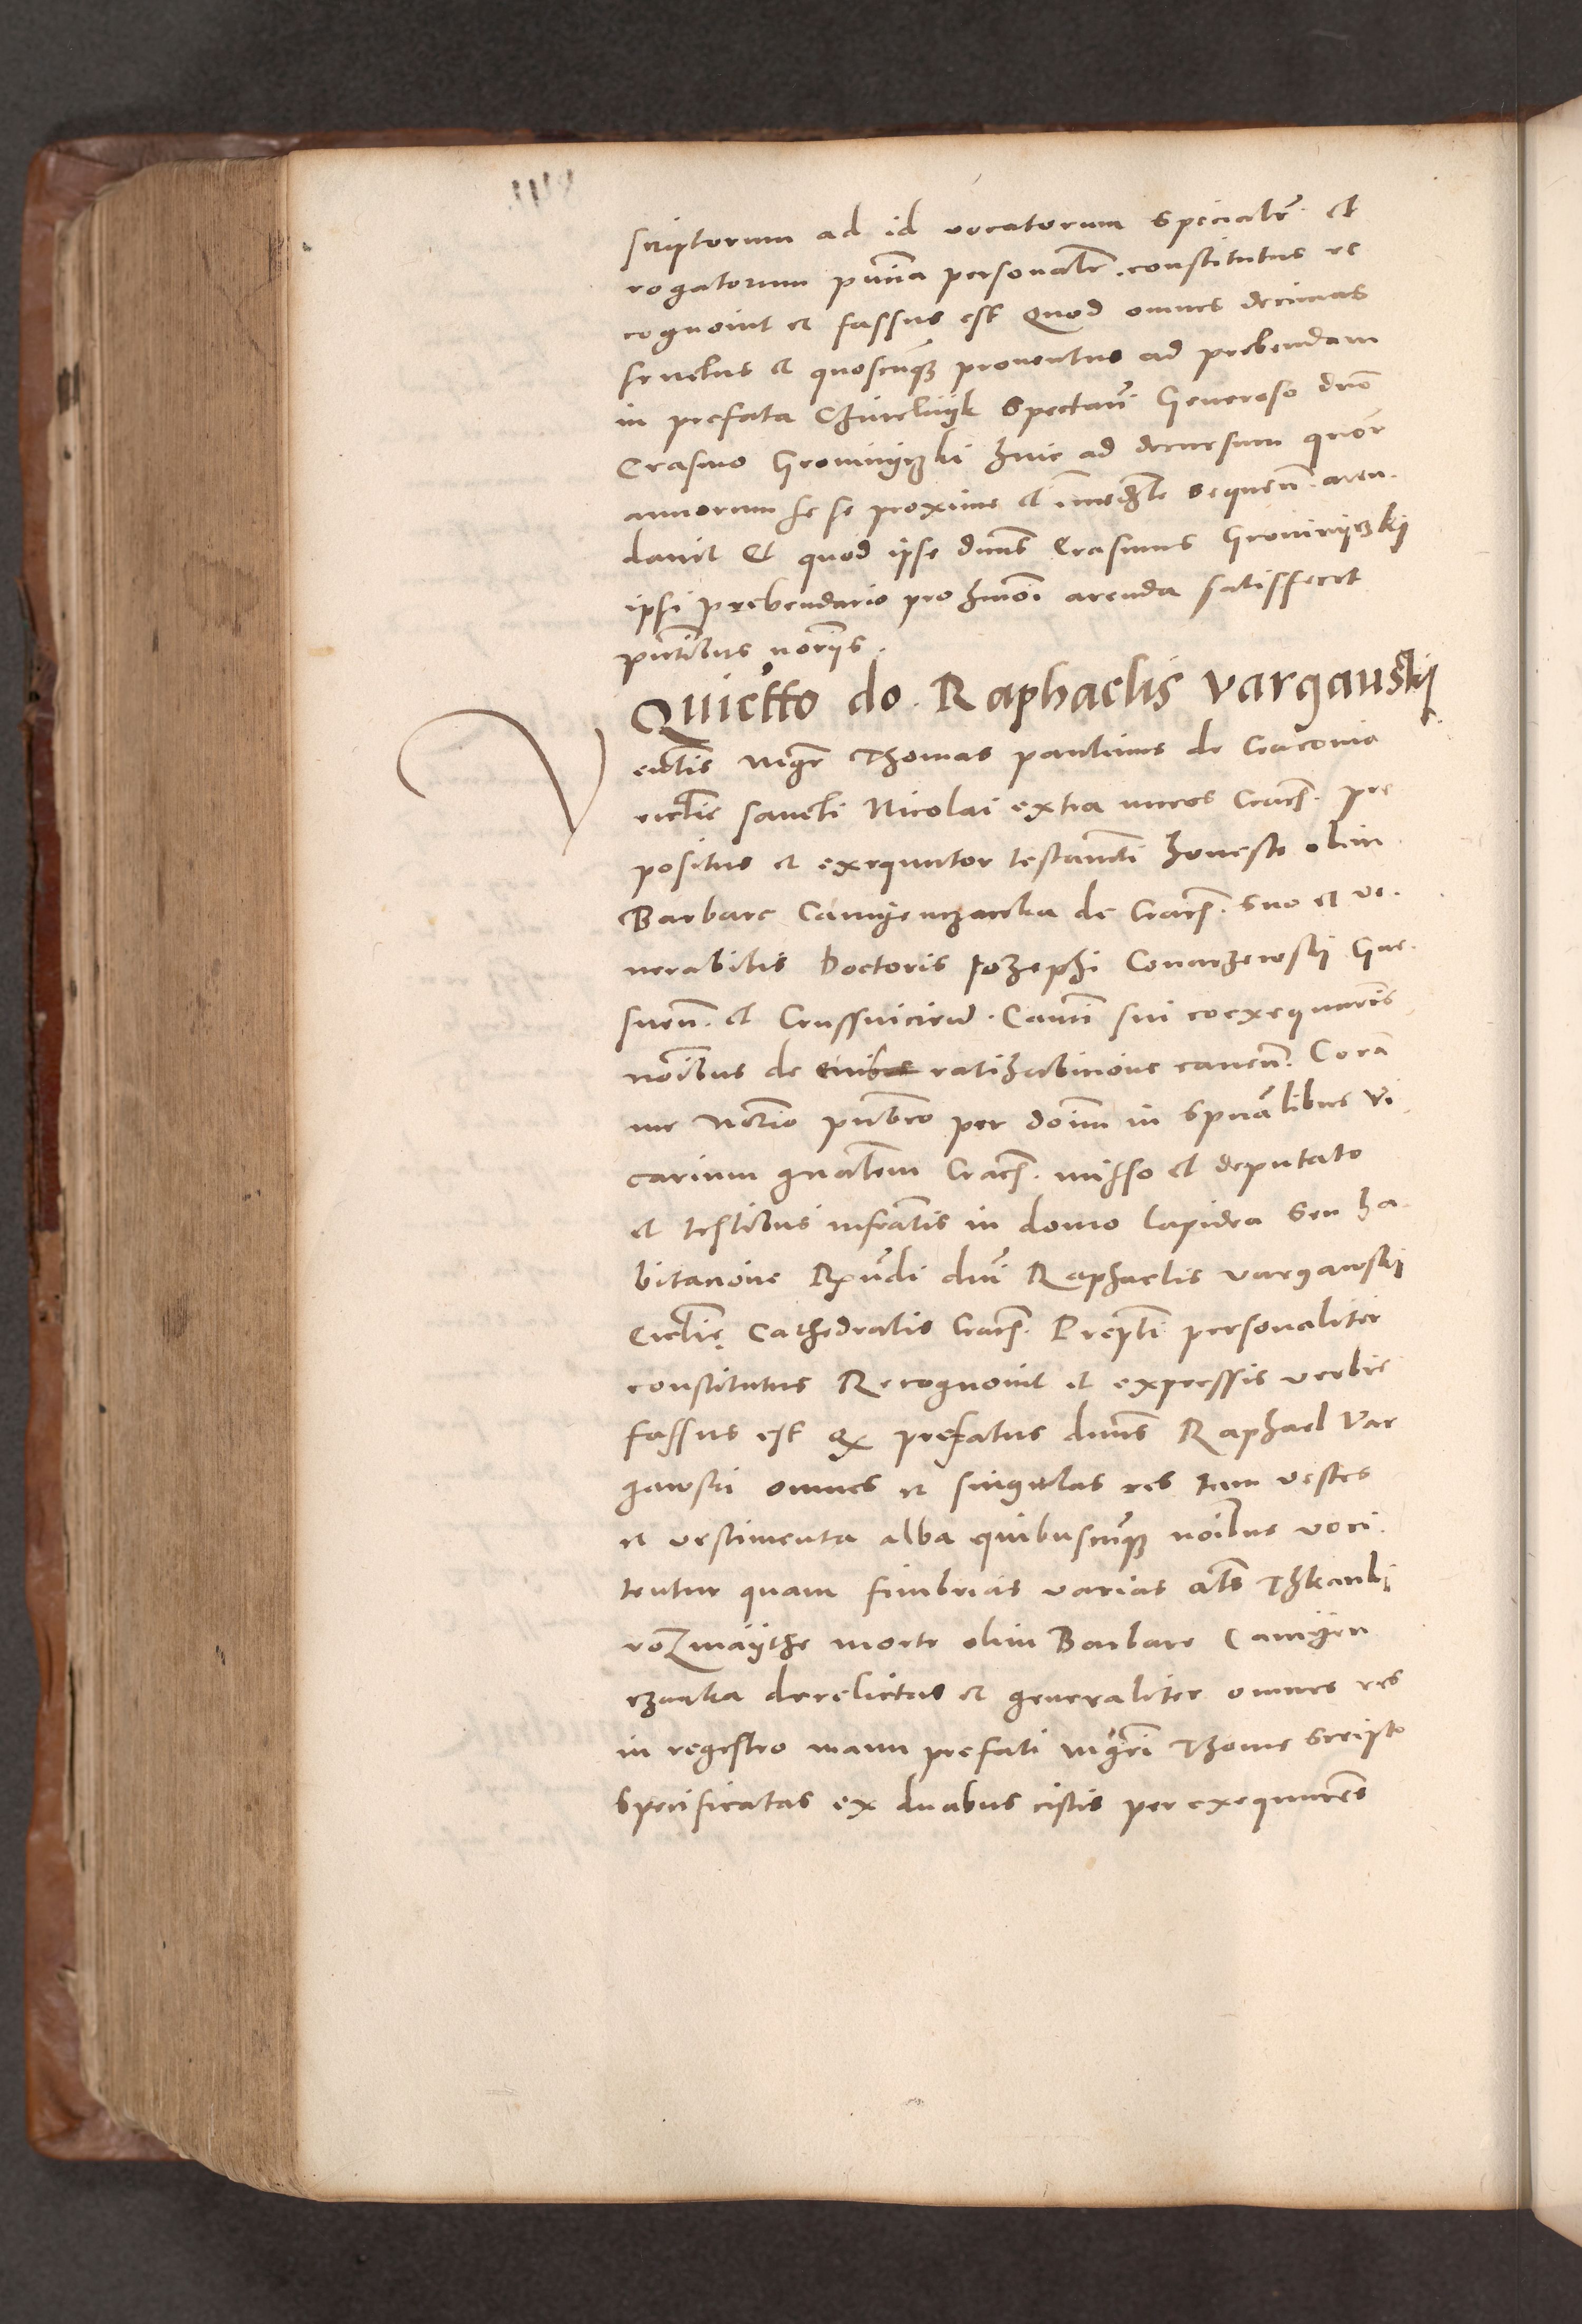 scriptorum ad id vocatorum specialr̃ et
rogatorum pñcia personalr̃ constitutus re
cognovit et fassus est Quod omnes decimas
fructus et quoscunq3 proventus ad prebendam
in prefata Spectañ Generoso dno
Erasmo huic ad decursum
annorum se se proxime et sequeñ aren
davit Et quod ipse dnus Erasmus
ipsi prebendario pro hmoi arenda satisfecit
pñtibus noriis.
Quietto do. Raphaelis vargauskij
Venlis Mgr Thomas paulinus de Cracovia
ecclie sancti Nicolai extra muros Crac. pre
positus et exequutor testamti honeste olim
Barbare Camyenczarka de Crac. suo et ve
nerabilis Doctoris Jozephi Gne
sneñ. et Crusvicieñ. Canci sui coexequtoris
noibus de ratihabicione caveñ. Cora
me Notrio publico per dominum in spualibus Vi
carium gnalem Crac. misso et deputato
et testibus infratis in domo lapidea seu ha
bitacione Rndi dni Raphaelis vargawskij
Ecclie Cathedralis Crac. Prepti personaliter
constitutus Recognovit et expressis verbis
fassus est q prefatus dnus Raphael Var
gawski omnes et singulas res tam vestes
et vestimenta alba quibuscunq3 noibus voci
tentur quam fimbrias varias als Thkanki
rozmaythe morte olim Barbare Camyen
czarka derelictas et generaliter omnes res
in regestro manu prefati mgri Thome scripto
specificatas ex duabus cistis per exequutores